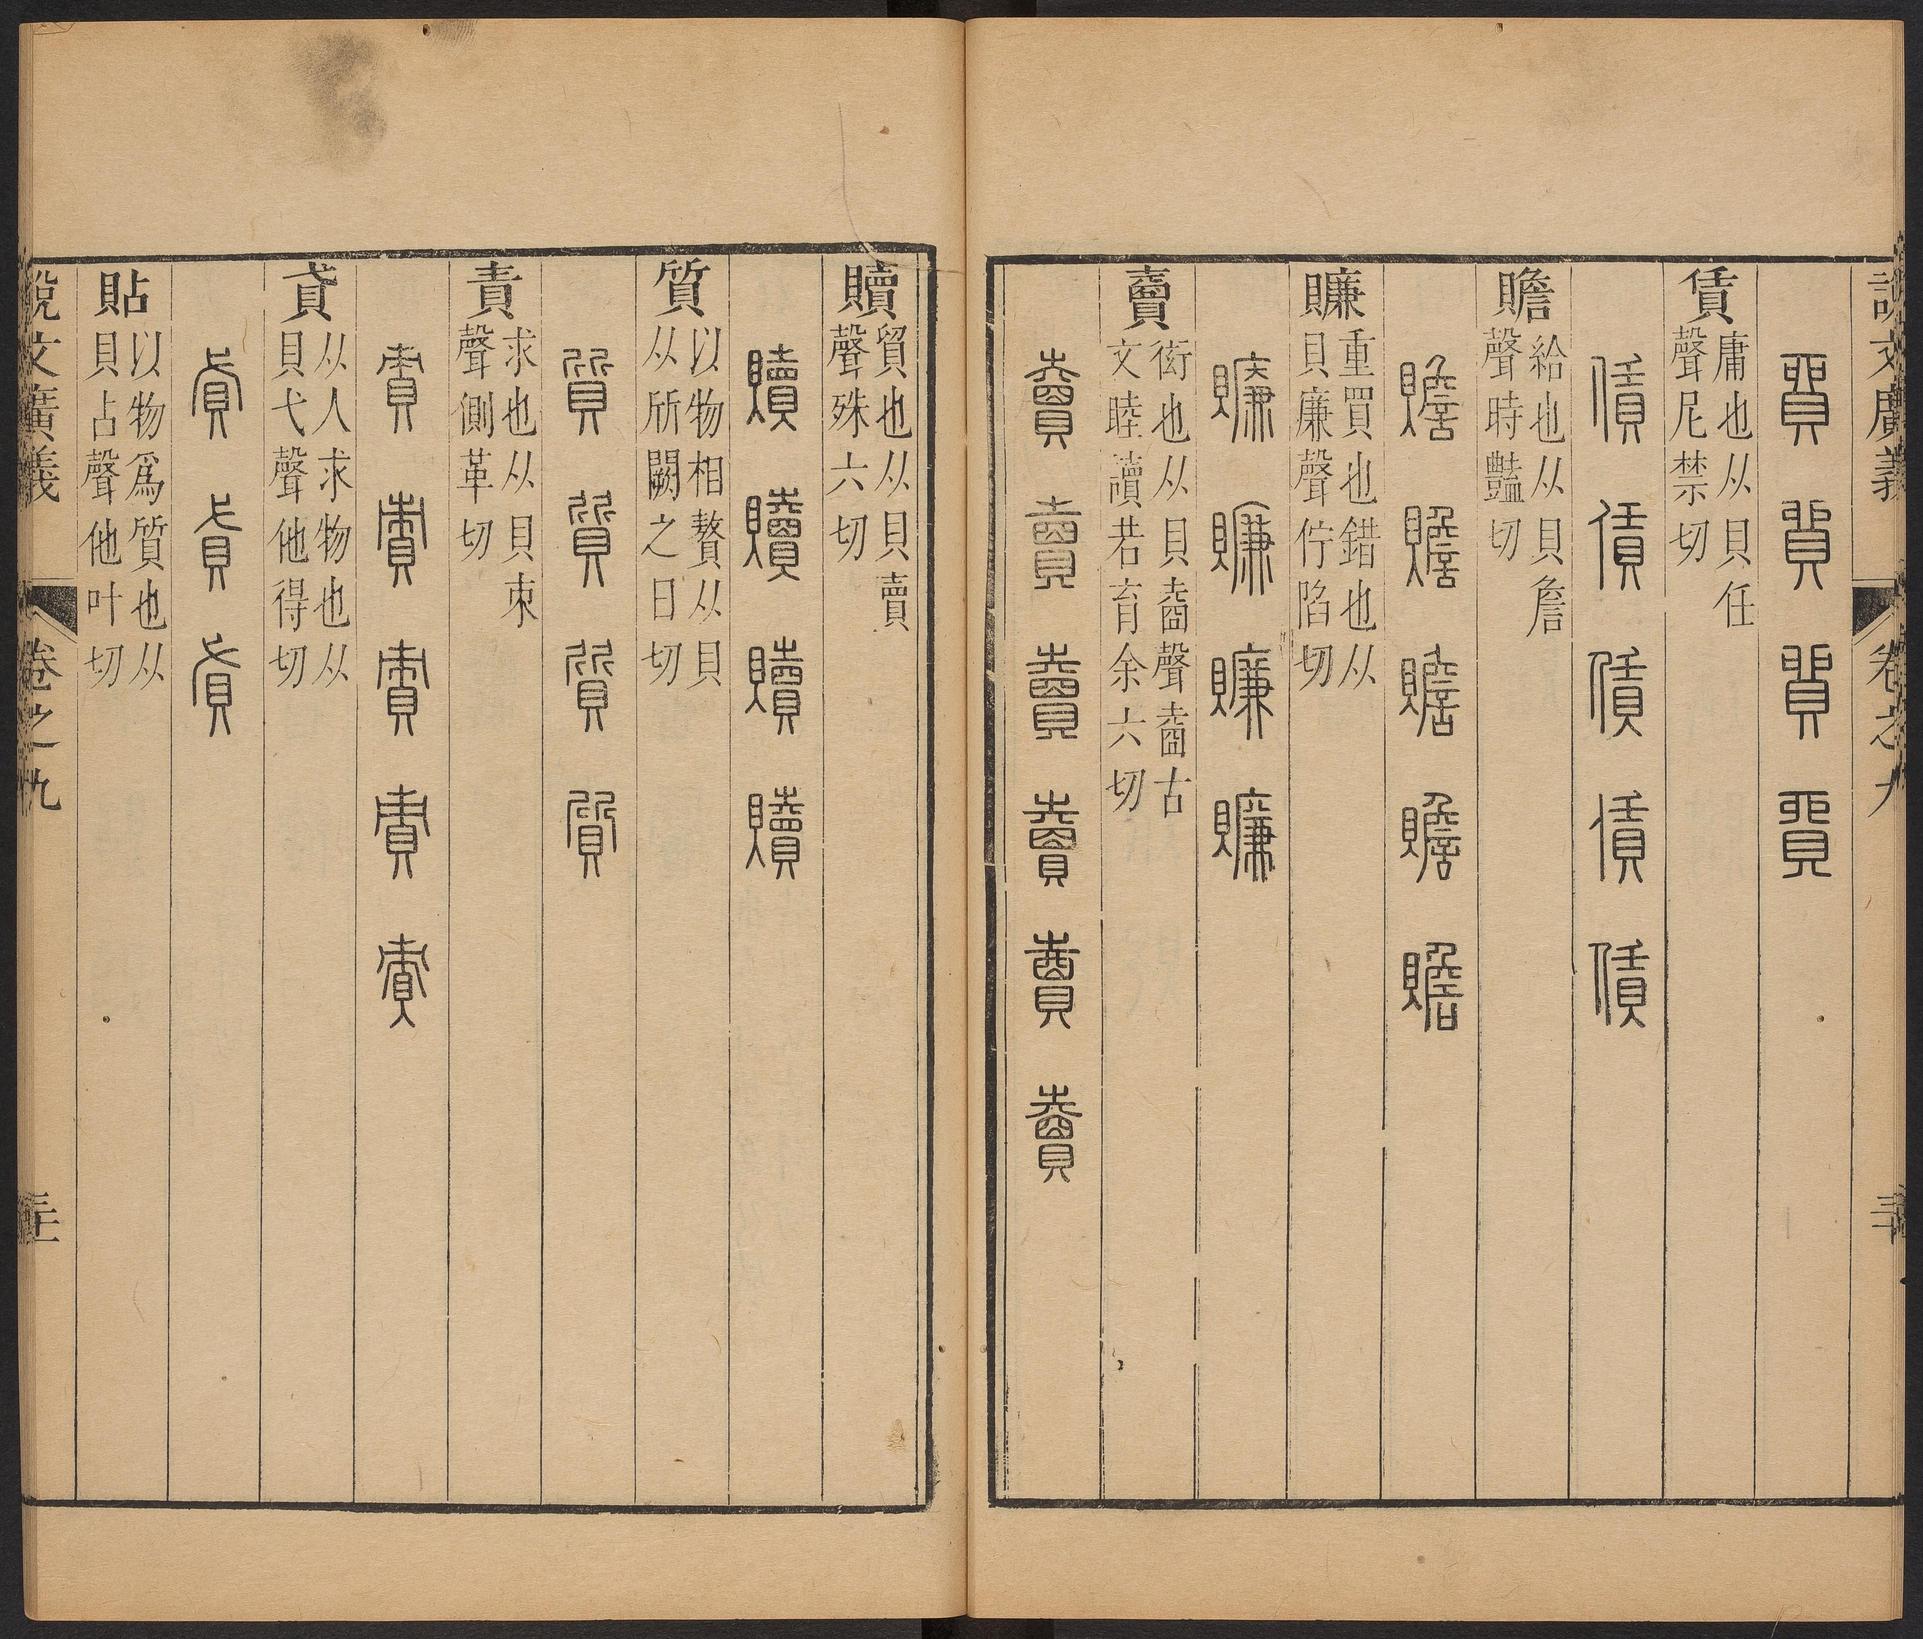 說文廣義 卷之九 三十
賃 庸也从貝任
聲尼禁切
賃 賃 賃 賃 賃
贍 給也从貝詹
聲時豔切
贍 贍 贍 贍 贍
賺 重買也錯也从
貝廉聲佇陷切
賺 賺 賺 賺
賣 衒也从貝𡍬聲𡍬古
文睦讀若育余六切
賣 賣 賣 賣 賣 賣
贖 貿也从貝賣
聲殊六切
贖 贖 贖 贖
質 以物相贅从貝
从斦闕之日切
質 質 質 質
責 求也从貝朿
聲側革切
責 責 責 責 責
貣 从人求物也从
貝弋聲他得切
貣 貣 貣
貼 以物爲質也从
貝占聲他叶切
說文廣義 卷之九 三十一